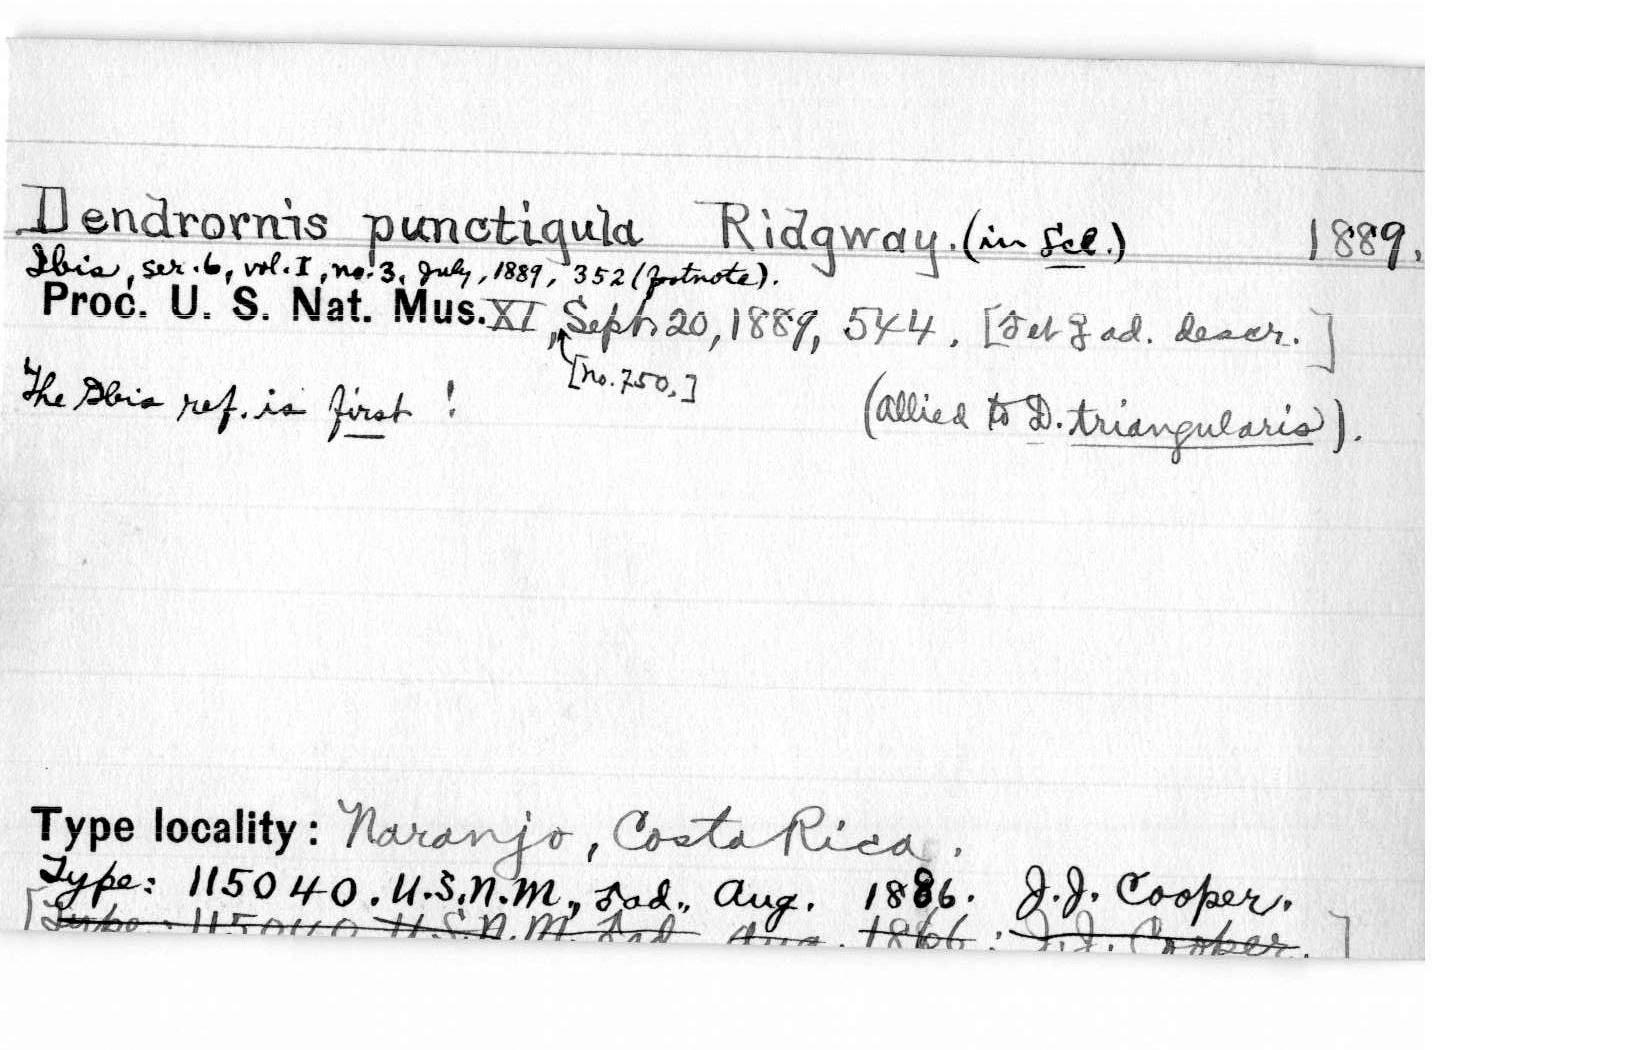 Dendrornis punctigula Ridgway. (in Scl.) 1889.
Ibis, ser. 6, vol. I, no. 3, July, 1889, 352 (footnote).
Proc. U. S. Nat. Mus. XI, Sept. 20, 1889, 544. [ ad. descr.]
[no. 750.]
The Ibis ref. is first!
(allied to D. triangularis).
Type locality: Naranjo, Costa Rica.
Type: 115040. U.S.N.M., ad., Aug. 1886. J.J. Cooper.
[Type: 115040 U.S.N.M. ad. Aug. 1866: J.J. Cooper.]